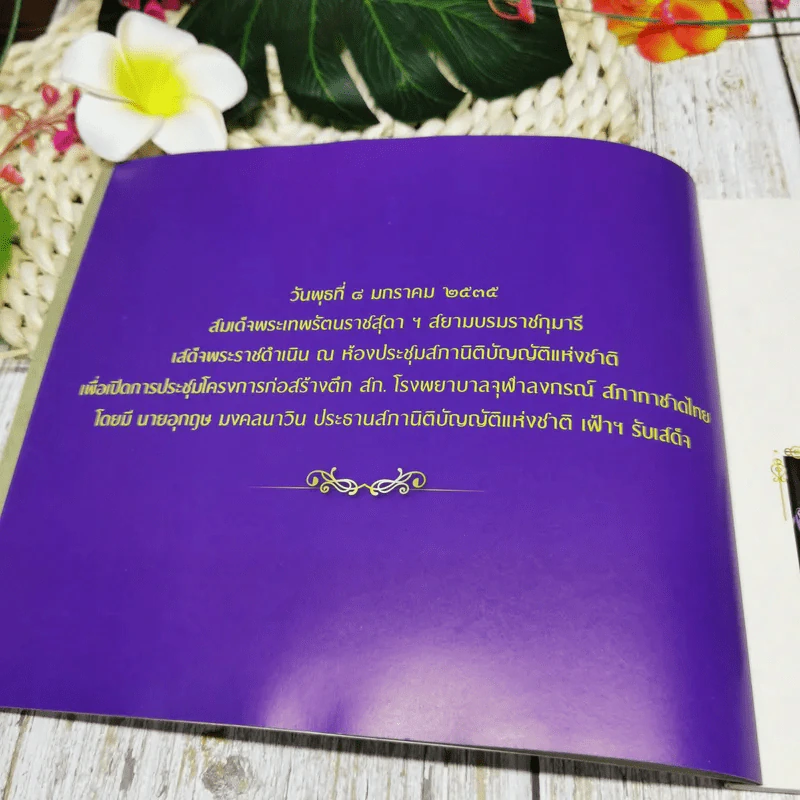 วันพุธที่ ๘ มกราคม ๒๕๓๕
สมเด็จพระเทพรัตนราชสุดา ฯ สยามบรมราชกุมารี
เสด็จพระราชดำเนิน ณ ห้องประชุมสภานิติบัญญัติแห่งชาติ
เพื่อเปิดการประชุมโครงการก่อสร้างตึก สก. โรงพยาบาลจุฬาลงกรณ์ สภากาชาดไทย
โดยมี นายอุกฤษ มงคลนาวิน ประธานสภานิติบัญญัติแห่งชาติ เฝ้าฯ รับเสด็จ